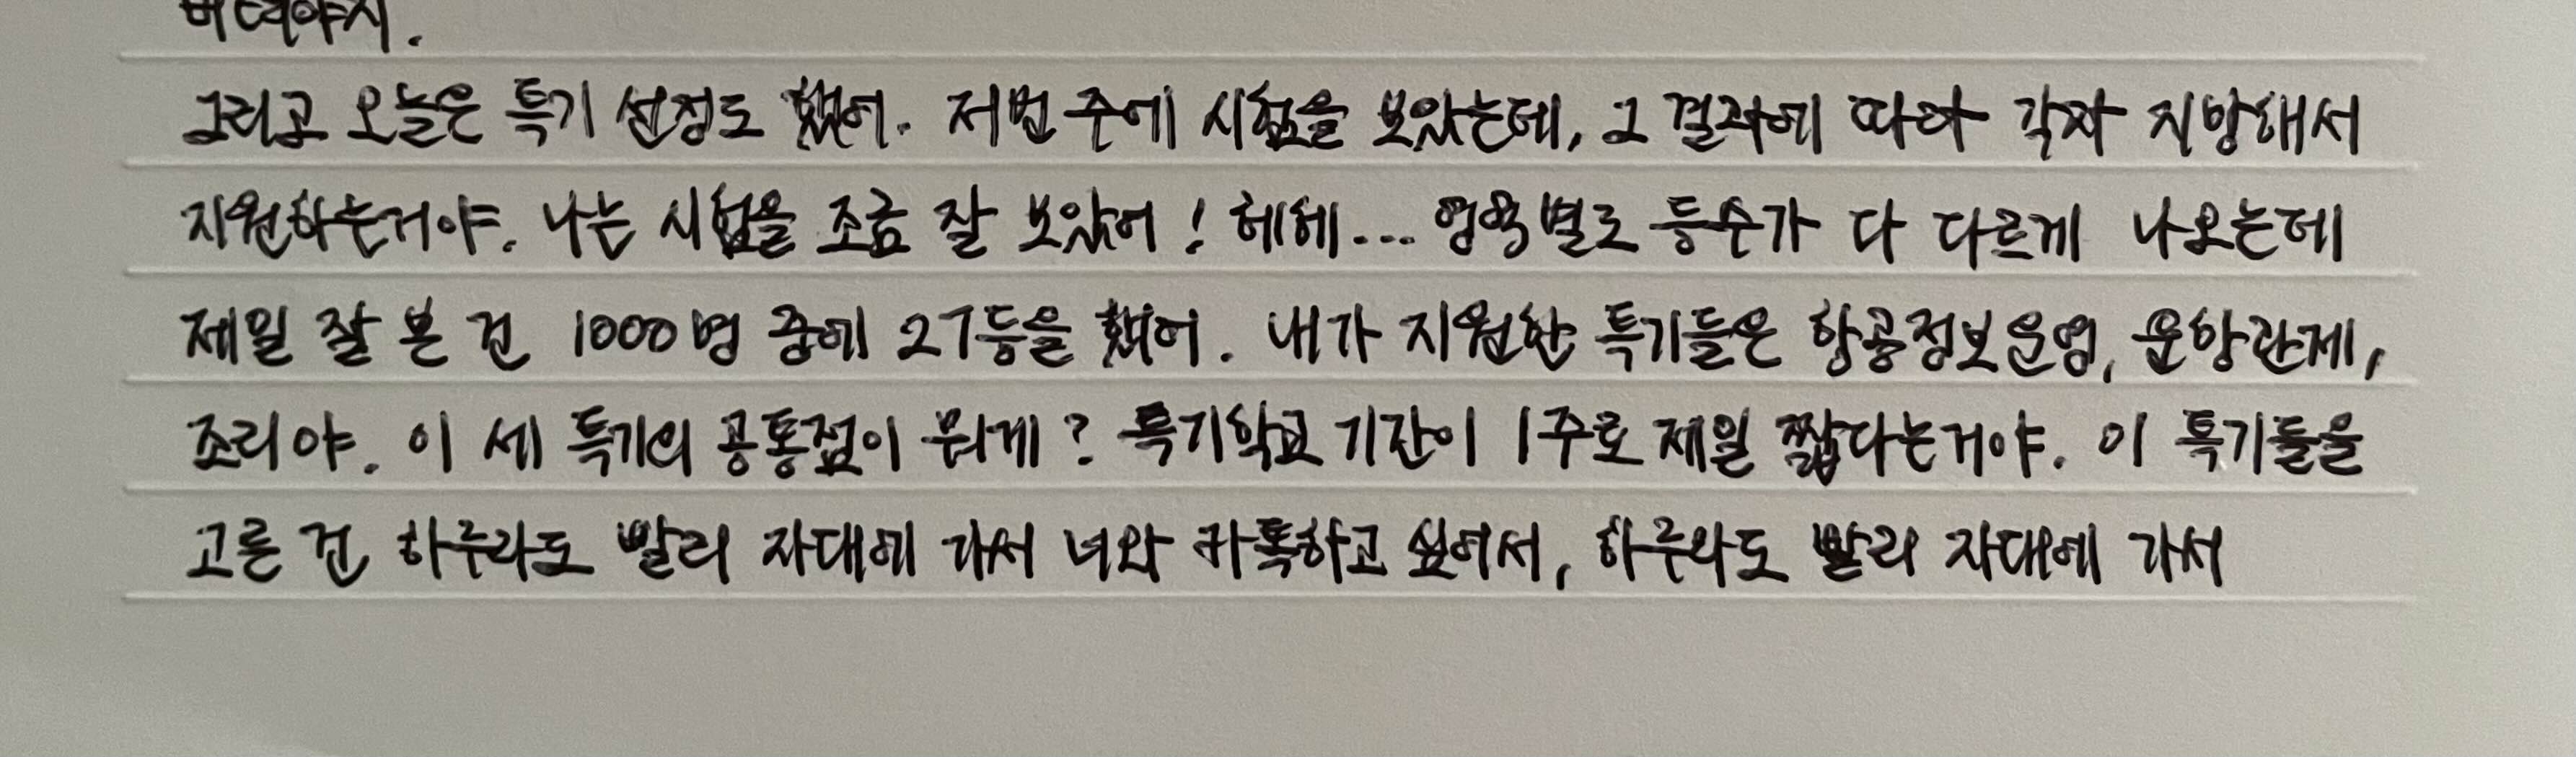 버텨야지.
그리고 오늘은 특기 선정도 했어. 저번 주에 시험을 보았는데, 그 결과에 따라 각자 지망해서
지원하는거야. 나는 시험을 조금 잘 보았어! 헤헤... 영역별로 등수가 다 다르게 나오는데
제일 잘 본 건 1000명 중에 27등을 했어. 내가 지원한 특기들은 항공정보운영, 운항관제,
조리야. 이 세 특기의 공통점이 뭐게? 특기학교 기간이 1주로 제일 짧다는거야. 이 특기들을
고른 건 하루라도 빨리 자대에 가서 너와 카톡하고 싶어서, 하루라도 빨리 자대에 가서